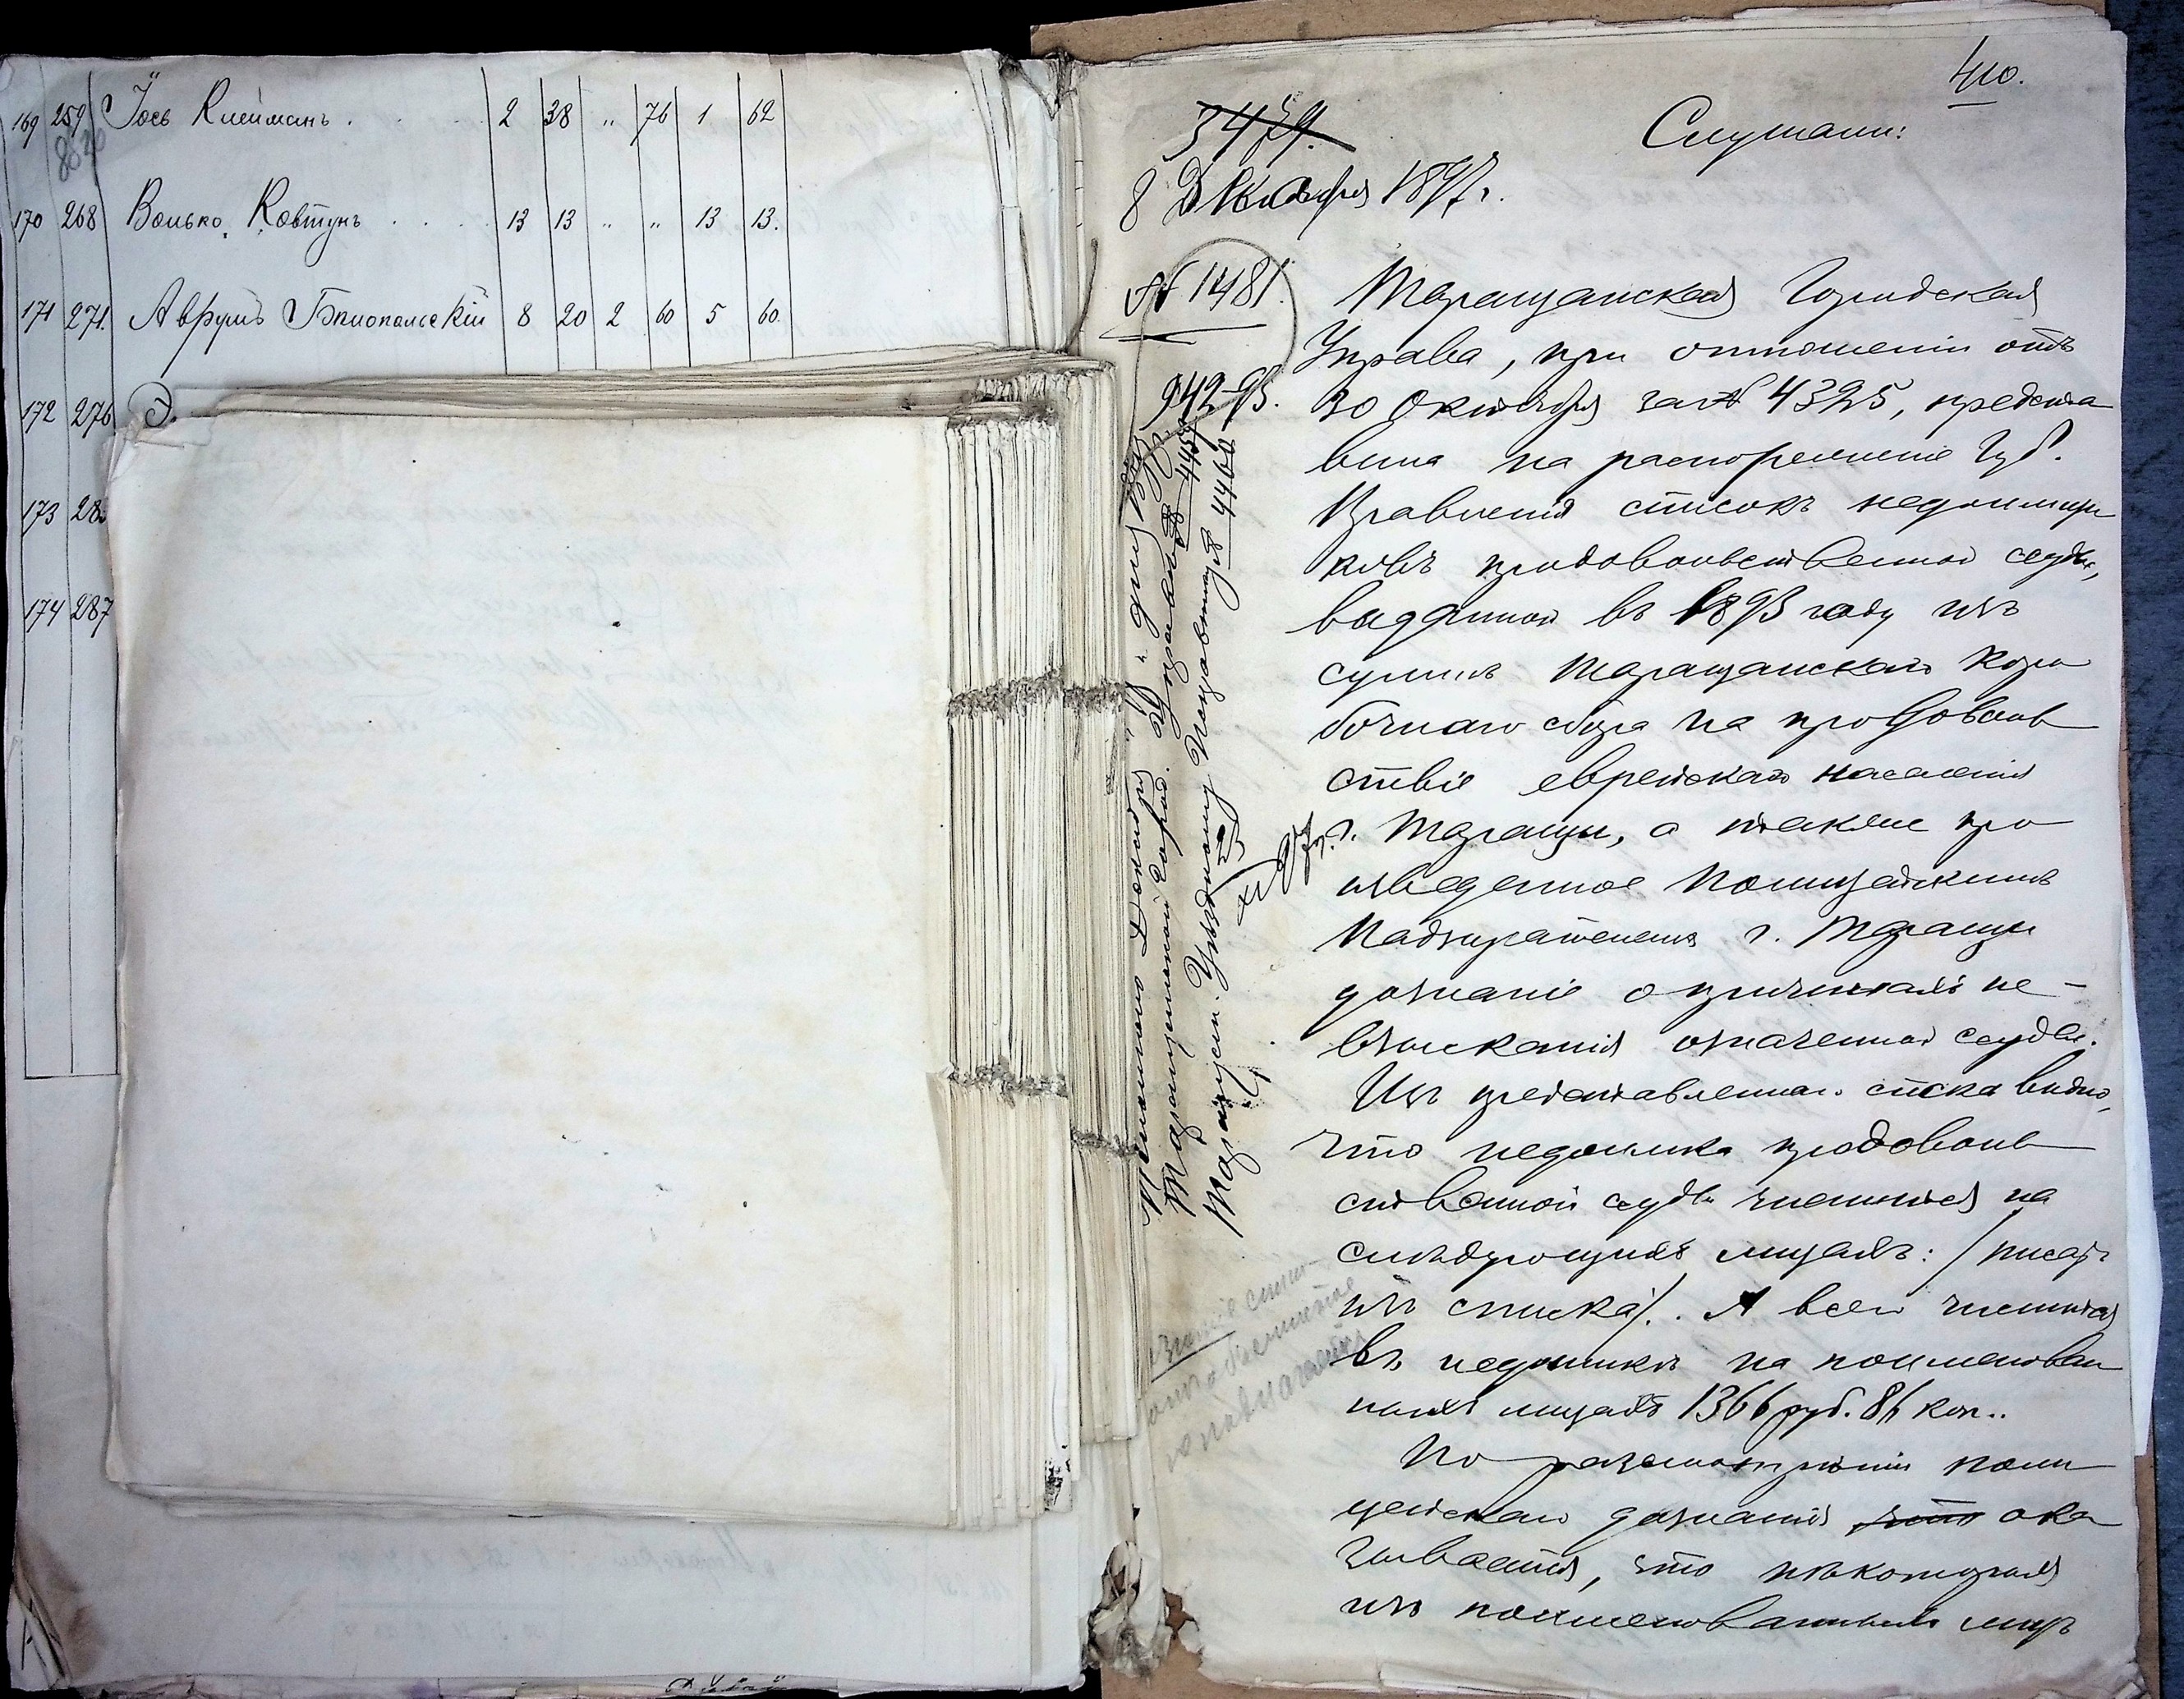 169 259 Іось Клейманъ . . . 2 38 „ 76 1 62
8820
170 268 Волько Ковтунъ . . . 13 13 „ „ 13 13.
171 271. Аврумъ Бѣлопольскій 8 20 2 60 5 60.
172 276 Э.
173 28
174 287
410.
3479.
Слушали:
8 Декабря 1897 г.
№ 1481.
942-93.
Таращанская Городская
Управа, при отношеніи отъ
30 Октября за № 4325, предста
вила на распоряженіе Губ.
Правленія списокъ недоимщи
ковъ продовольственной ссуды,
выданной въ 1893 году изъ
суммъ Таращанскаго Коро
бочнаго сбора на продоволь
ствіе еврейскаго населенія
г. Таращи, а также про
изведенное Полицейскимъ
Надзирателемъ г. Таращи
дознаніе о причинахъ не-
взысканія означенной ссуды.
Изъ представленнаго списка видно,
что недоимка продоволь
ственной ссуды числится на
слѣдующихъ лицахъ: / писать
изъ списка /. А всего числится
въ недоимкѣ на поименован
ныхъ лицахъ 1366 руб. 86 коп..
По разсмотрѣніи поли
цейскаго дознанія что ока
зывается, что нѣкоторыя
изъ поименованныхъ лицъ
Исполнено Декабря „ 23 „ дня 1897 г.
Таращанской Город. Управѣ № 4459
Таращан. Уѣздному Исправнику № 4460